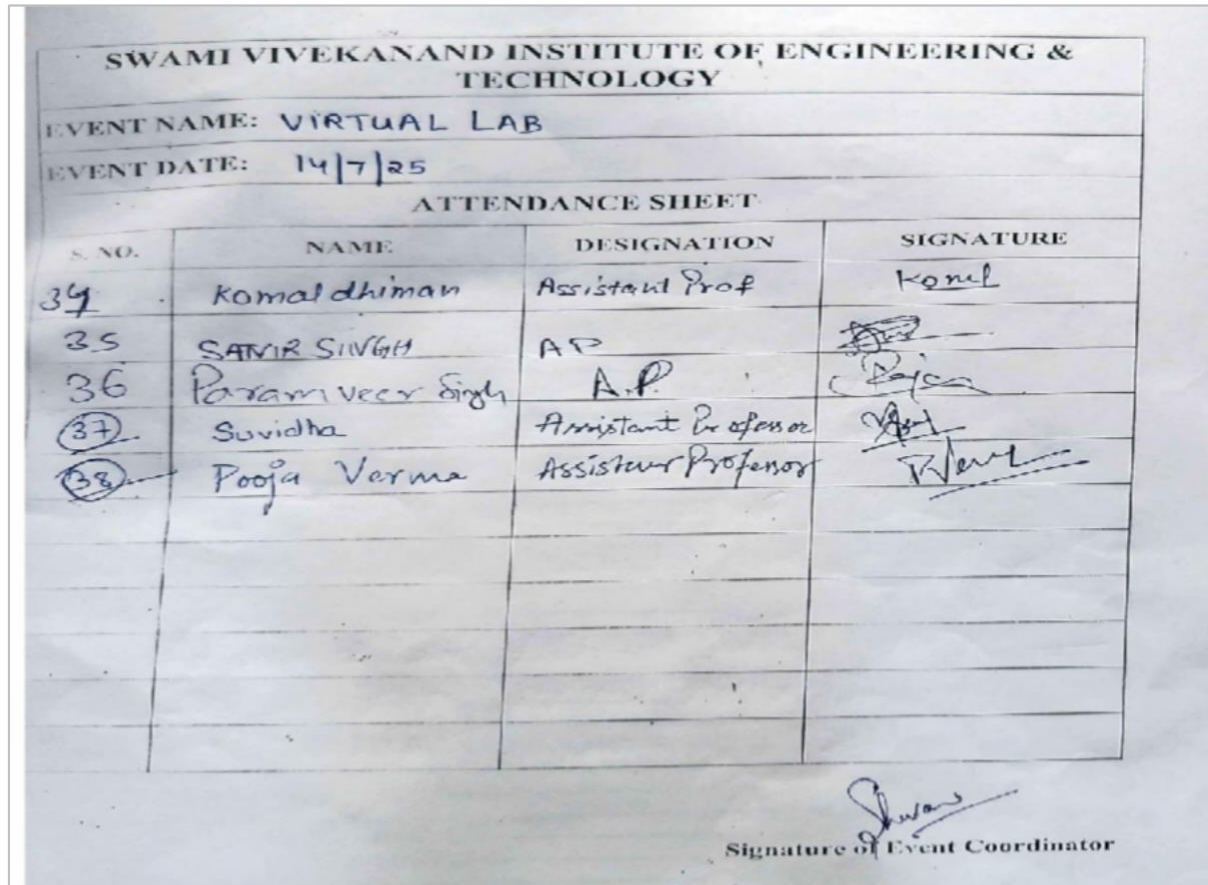 SWAMI VIVEKANAND INSTITUTE OF ENGINEERING &
TECHNOLOGY
EVENT NAME: VIRTUAL LAB
EVENT DATE: 14/7/25
ATTENDANCE SHEET
S. NO. NAME DESIGNATION SIGNATURE
34 Komal dhiman Assistant Prof Komal
35 SINGH AP
36 Paramveer Singh A.P.
37 Suvidha Assistant Professor
38 Pooja Verma Assistant Professor
Signature of Event Coordinator